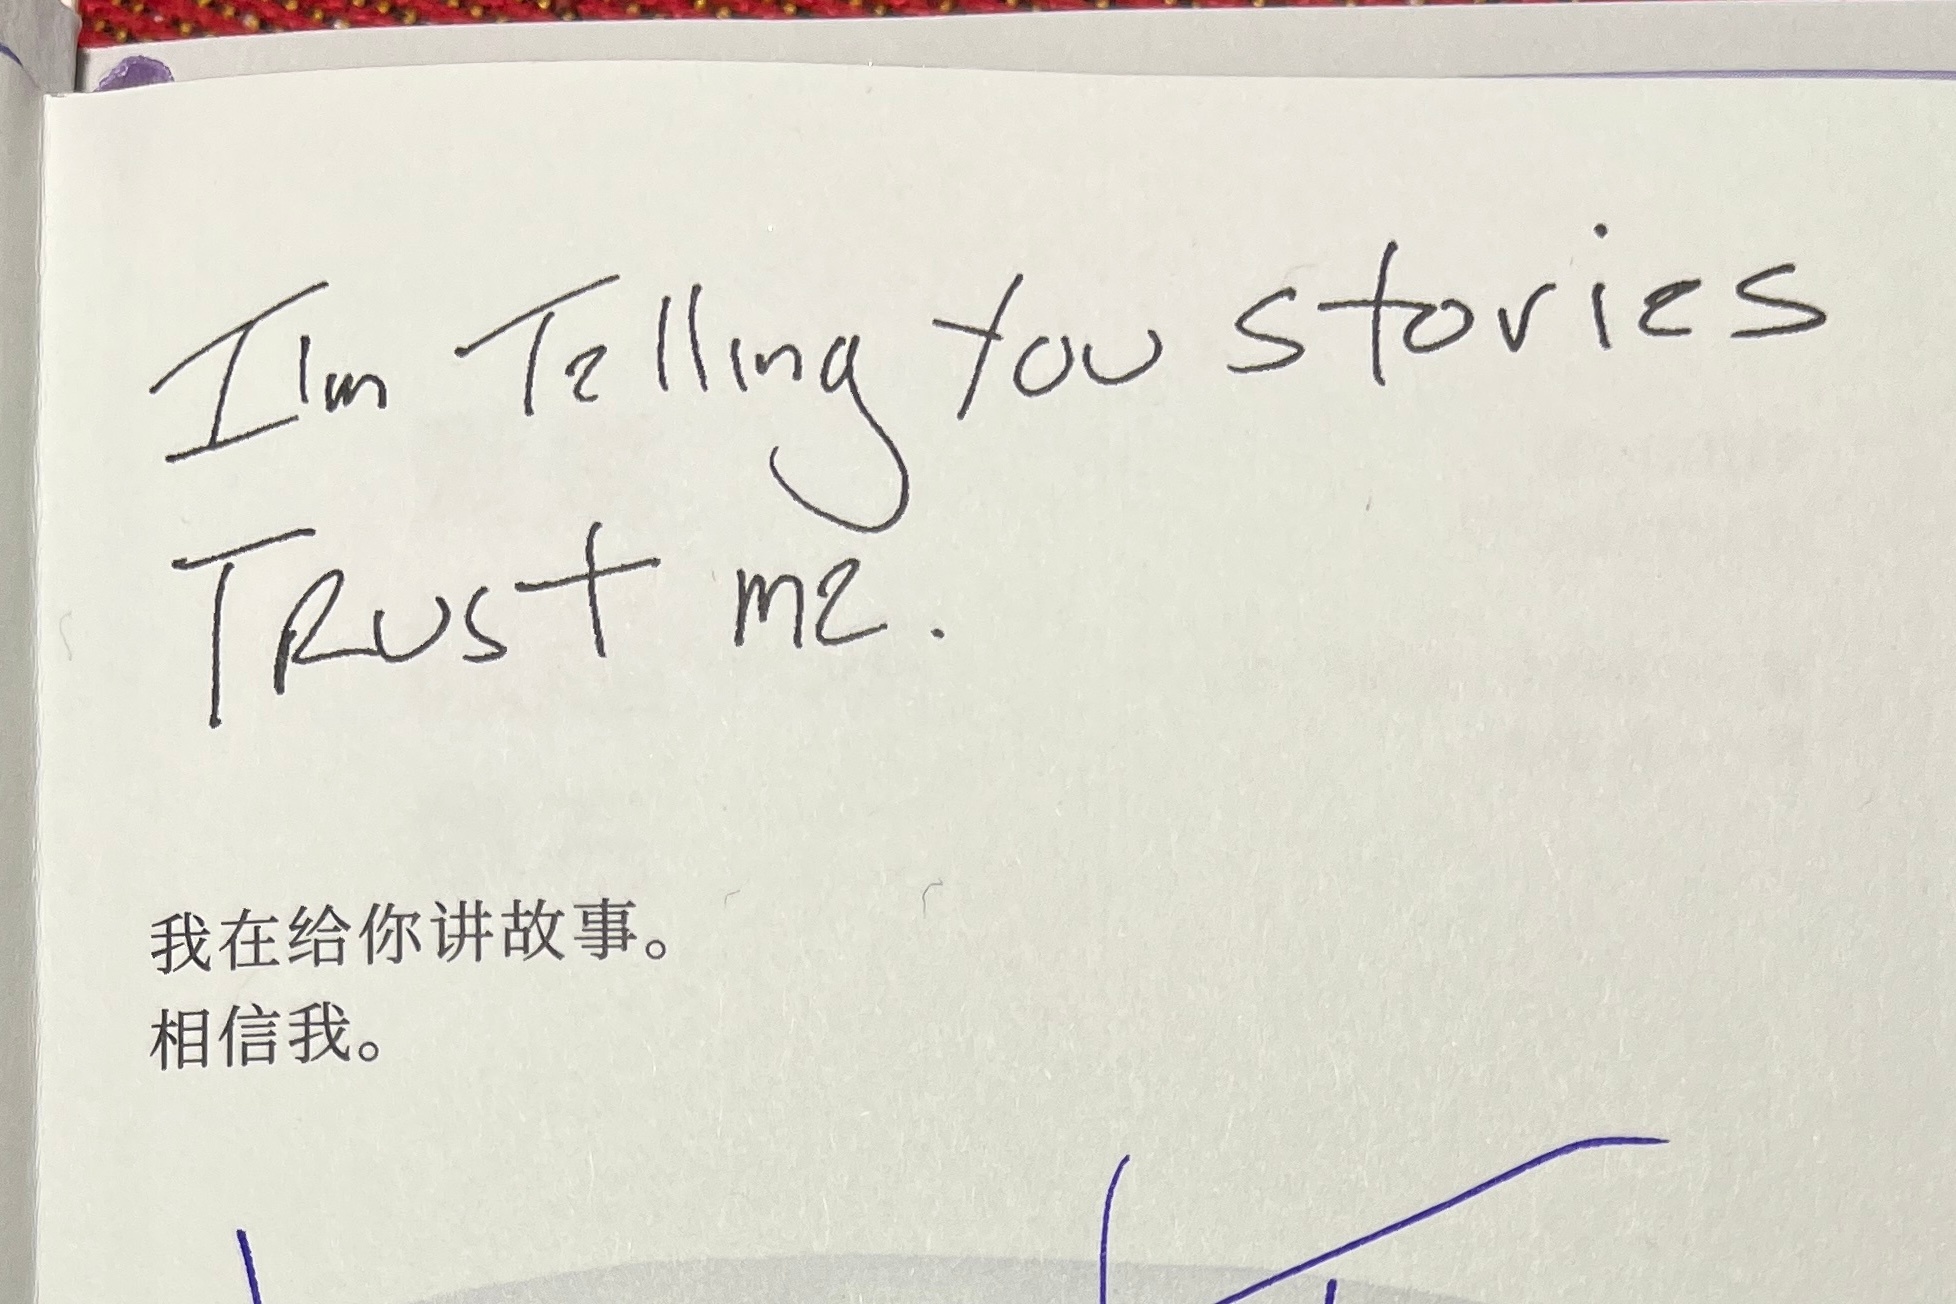 I'm Telling You stories
TRUST me.
我在给你讲故事。
相信我。